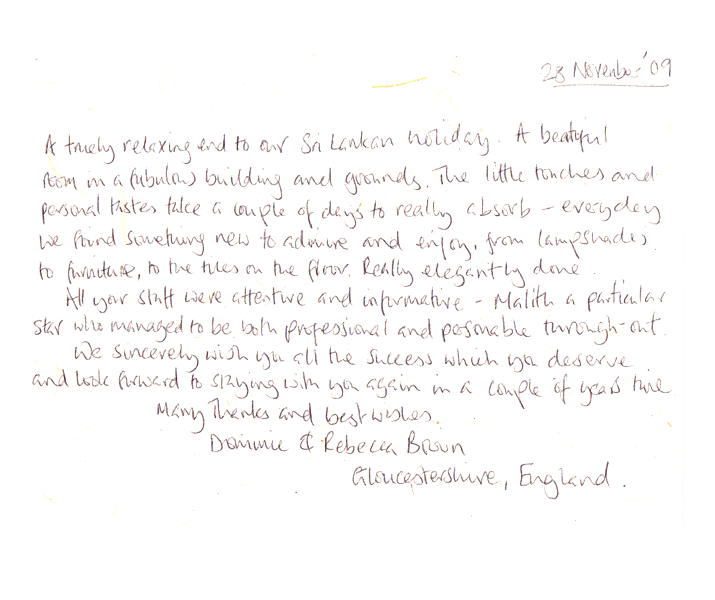 28 November '09
A truely relaxing end to our Sri Lankan holiday. A beatiful
room in a fabulous building and grounds. The little touches and
personal tastes take a couple of days to really absorb – everyday
we found something new to admire and enjoy, from lampshades
to furniture, to the tiles on the floor. Really elegantly done.
All your staff were attentive and informative – Malith a particular
star who managed to be both professional and personable through-out.
We sincerely wish you all the success which you deserve
and look forward to staying with you again in a couple of years time
Many Thanks and best wishes.
Dominic & Rebecca Brown
Gloucestershire, England.